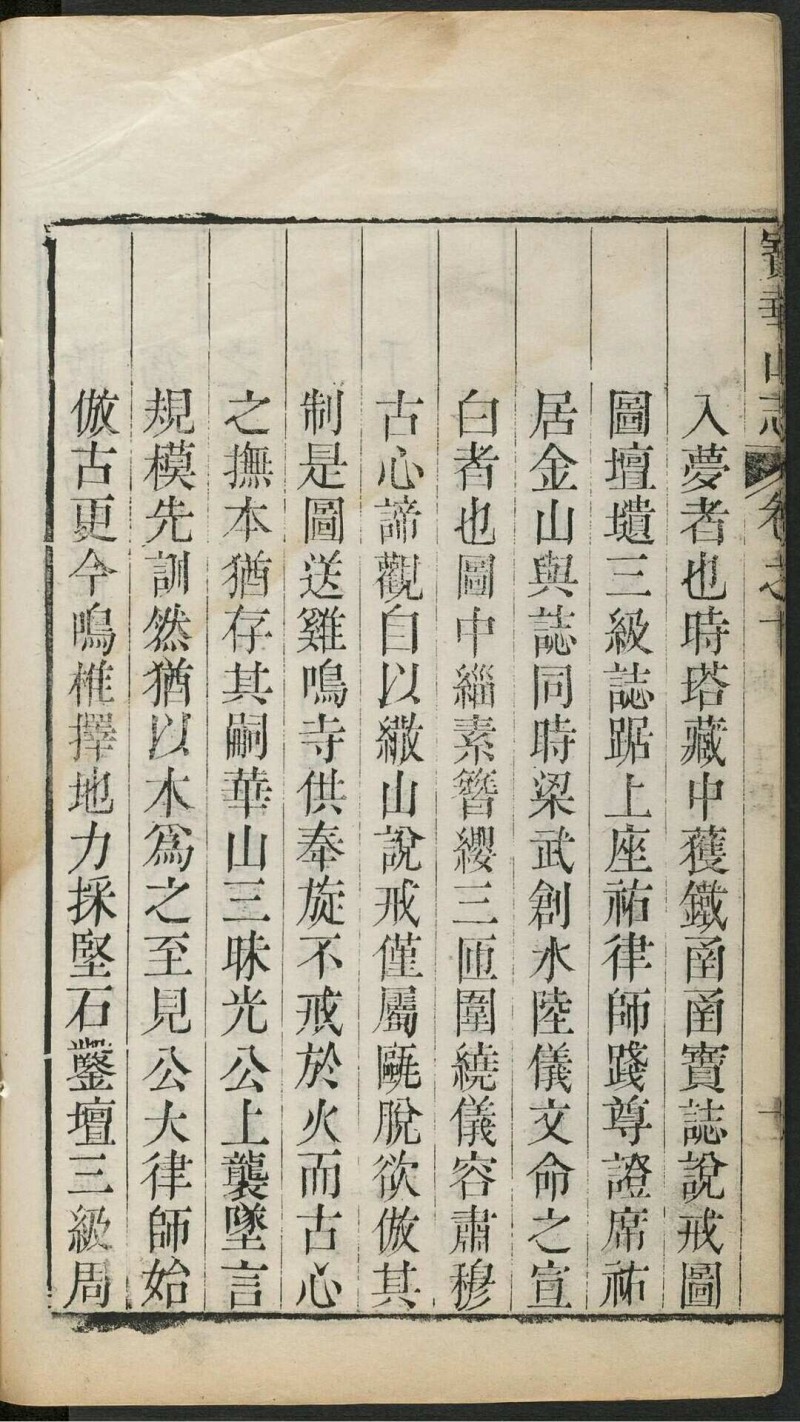 寶華山志 卷之十
入夢者也時塔藏中獲鐵函函寶誌說戒圖
圖壇壝三級誌踞上座祐律師踐尊證席祐
居金山與誌同時梁武創水陸儀文命之宣
白者也圖中緇素簪纓三匝圍繞儀容肅穆
古心諦觀自以繖山說戒僅屬甌脫欲倣其
制是圖送雞鳴寺供奉旋不戒於火而古心
之撫本猶存其嗣華山三昧光公上襲墜言
規模先訓然猶以木爲之至見公大律師始
倣古更今鳴椎擇地力採堅石鑿壇三級周